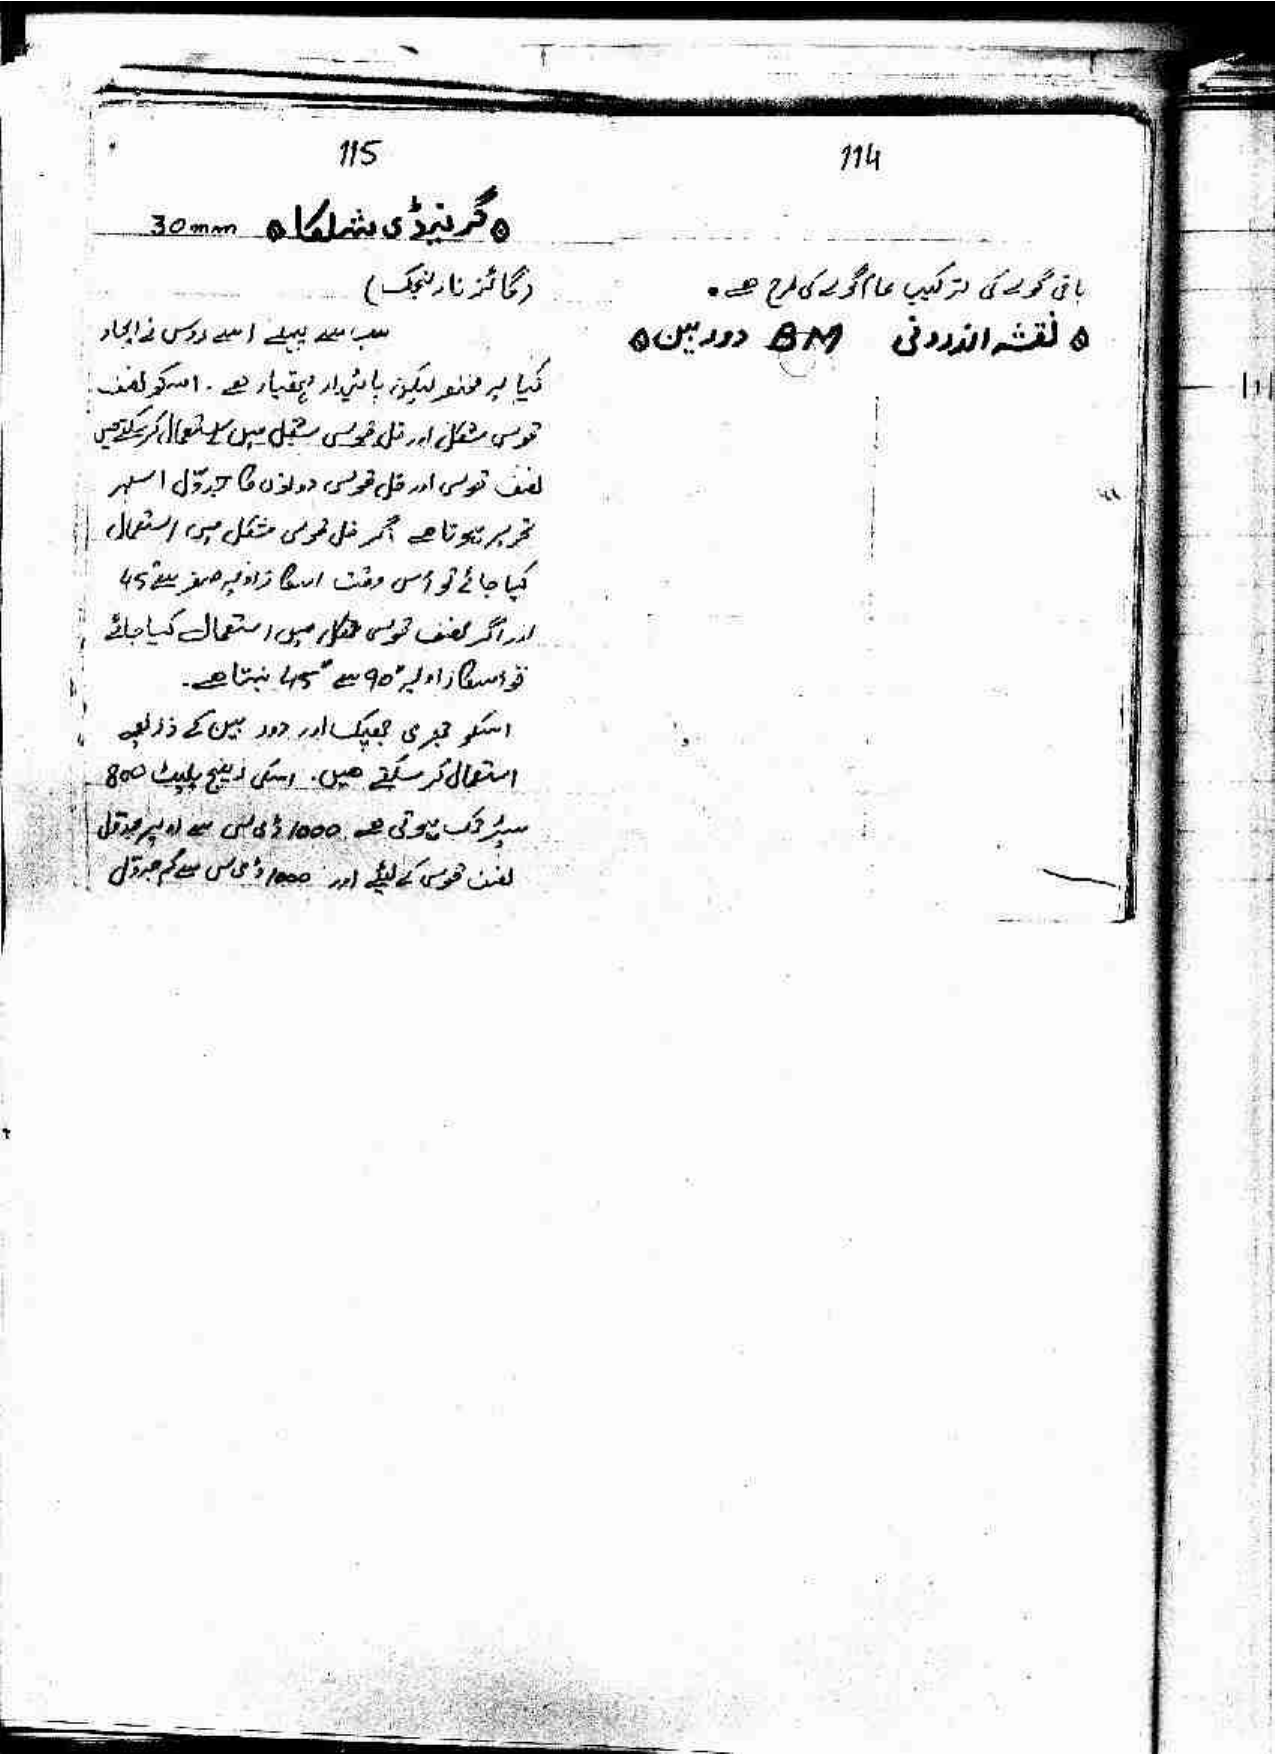 114
باقی گولے کی ترکیب عام گولے کی طرح ھے۔
نقشہ اندرونی BM دوربین
115
گرنیڈی شلکا 30mm
سب سے پہلے اسے روس نے ایجاد
کیا یہ لیکن پائیدار ہتھیار ھے۔ اسکو نصف
قوسی شکل اور فل قوسی شکل میں استعمال کرسکتے ھیں
نصف قوسی اور فل قوسی دونوں کا جدول اسپر
تحریر ہوتا ھے اگر فل قوسی شکل میں استعمال
کیا جائے تو اُس وقت اسکا زاویہ صفر سے 45
اور اگر نصف قوسی شکل میں استعمال کیا جائے
تو اسکا زاویہ 90° سے 45° بنتا ھے۔
اسکو اور دور بین کے ذریعے
استعمال کر سکتے ھیں۔ اسکی رینج پلیٹ 800
میٹر تک ہوتی ھے 1000 ڈی سی سے اوپر جدول
نصف قوسی کے لیئے اور 1000 ڈی سی سے کم جدول